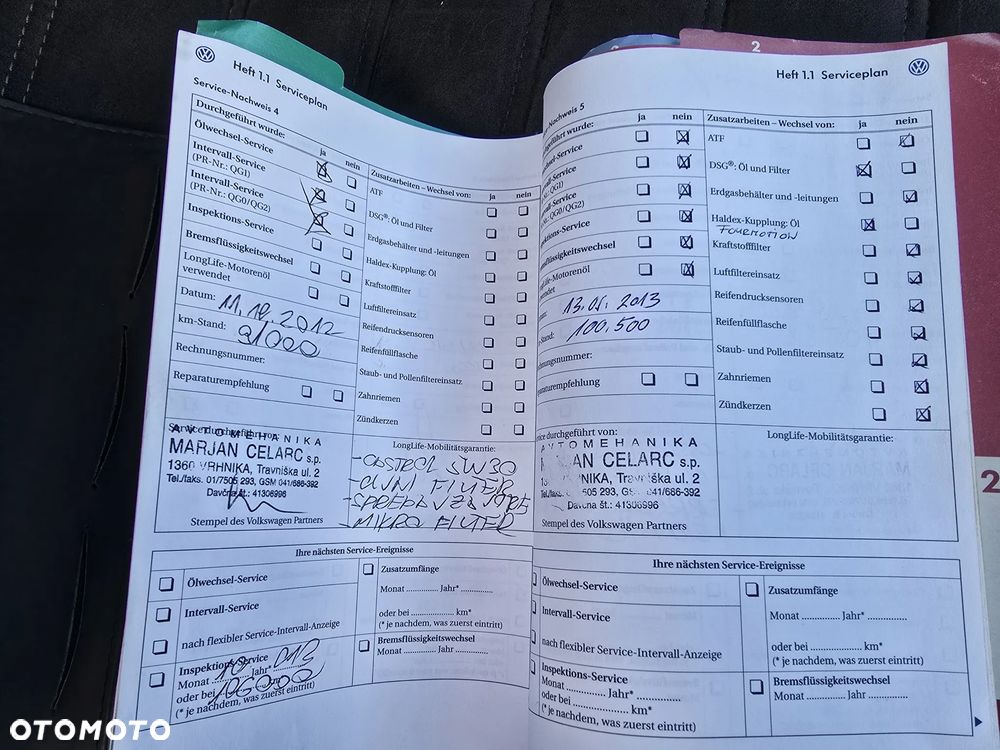 2
Heft 1.1 Serviceplan
Service-Nachweis 4
Durchgeführt wurde:
ja
nein
Ölwechsel-Service
Intervall-Service
(PR-Nr.: QG1)
Intervall-Service
(PR-Nr.: QG0/QG2)
Inspektions-Service
Bremsflüssigkeitswechsel
LongLife-Motorenöl
verwendet
Datum: 11.12.2012
km-Stand: 91000
Rechnungsnummer:
Reparaturempfehlung
Zusatzarbeiten – Wechsel von:
ja
nein
ATF
DSG®: Öl und Filter
Erdgasbehälter und -leitungen
Haldex-Kupplung: Öl
Kraftstofffilter
Luftfiltereinsatz
Reifendrucksensoren
Reifenfüllflasche
Staub- und Pollenfiltereinsatz
Zahnriemen
Zündkerzen
Service durchgeführt von:
AVTOMEHANIKA
MARJAN CELARC s.p.
1360 VRHNIKA, Travniška ul. 2
Tel./faks. 01/7505 293, GSM 041/686-392
Davčna št.: 41306996
Stempel des Volkswagen Partners
LongLife-Mobilitätsgarantie:
5W30
FILTER
- MIKRO FILTER
Ihre nächsten Service-Ereignisse
Ölwechsel-Service
Intervall-Service
nach flexibler Service-Intervall-Anzeige
Inspektions-Service
Monat Jahr*
oder bei km*
(* je nachdem, was zuerst eintritt)
Zusatzumfänge
Monat .............. Jahr* ..............
oder bei .................... km*
(* je nachdem, was zuerst eintritt)
Bremsflüssigkeitswechsel
Monat ............ Jahr ..............
Heft 1.1 Serviceplan
-Nachweis 5
geführt wurde:
ja
nein
-Service
-Service
QG1)
-Service
QG0/QG2)
ktions-Service
flüssigkeitswechsel
Life-Motorenöl
endet
13.05.2013
Stand: 100.500
nungsnummer:
araturempfehlung
Zusatzarbeiten – Wechsel von:
ja
nein
ATF
DSG®: Öl und Filter
Erdgasbehälter und -leitungen
Haldex-Kupplung: Öl
FOURMOTION
Kraftstofffilter
Luftfiltereinsatz
Reifendrucksensoren
Reifenfüllflasche
Staub- und Pollenfiltereinsatz
Zahnriemen
Zündkerzen
vice durchgeführt von:
AVTOMEHANIKA
AN CELARC s.p.
NIKA, Travniška ul. 2
505 293, GSM 041/686-392
Davčna št.: 41306996
Stempel des Volkswagen Partners
LongLife-Mobilitätsgarantie:
Ihre nächsten Service-Ereignisse
Ölwechsel-Service
Intervall-Service
nach flexibler Service-Intervall-Anzeige
Inspektions-Service
Monat ............. Jahr* ..............
oder bei .................... km*
(* je nachdem, was zuerst eintritt)
Zusatzumfänge
Monat ............. Jahr* .............
oder bei .................... km*
(* je nachdem, was zuerst eintritt)
Bremsflüssigkeitswechsel
Monat ............ Jahr .............
2
OTOMOTO